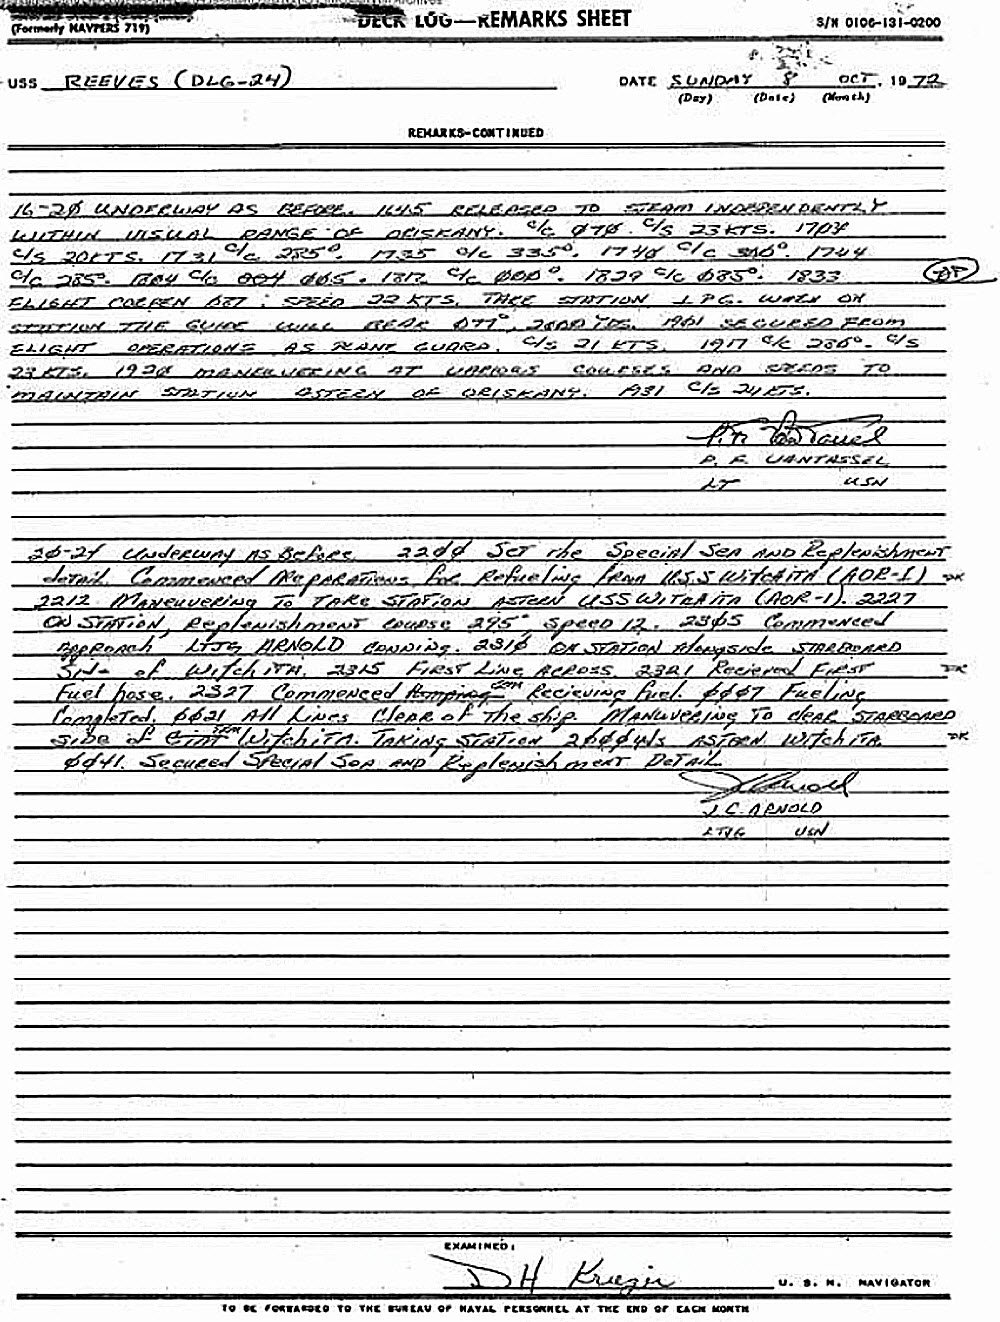 (Formerly NAVPERS 719)
DECK LOG—REMARKS SHEET
S/N 0106-131-0200
USS REEVES (DLG-24)
DATE SUNDAY 8 OCT, 1972
(Day) (Date) (Month)
REMARKS-CONTINUED
16-2Ø UNDERWAY AS BEFORE. 1645 RELEASED TO STEAM INDEPENDENTLY
WITHIN VISUAL RANGE OF ORISKANY. C/C Ø7Ø. C/S 23 KTS. 1704
C/S 20 KTS. 1731 C/C 285°. 1735 C/C 335°. 174Ø C/C 300°. 1744
C/C 285°. 1804 C/C 004 005. 1817 C/C ØØØ°. 1829 C/C 085°. 1833
FLIGHT CORPEN Ø87: SPEED 22 KTS. TAKE STATION 1PG. WHEN ON
STATION THE GUIDE WILL BEAR Ø77°, 2000 YDS. 1901 SECURED FROM
FLIGHT OPERATIONS AS PLANE GUARD. C/S 21 KTS. 1917 C/C 286°. C/S
23 KTS. 192Ø MANEUVERING AT VARIOUS COURSES AND SPEEDS TO
MAINTAIN STATION ASTERN OF ORISKANY. 1931 C/S 24 KTS.
P. F. VANTASSEL
LT USN
2Ø-24 Underway AS Before 22ØØ Set the Special Sea AND Replenishment
detail. Commenced PrepARAtions for Refueling from U.S.S WitchiTA (AOR-1) DK
2212 MANeuveriNg To TAKe STATION ASTERN USS WITCHITA (AOR-1). 2227
ON STATION, Replenishment Course 295° Speed 12. 23Ø5 Commenced
Approach LTJG ARNOLD CONNING. 231Ø ON STATION Alongside STARBOARD
Side of WitchiTA. 2315 FIRST Line Across. 2321 Recieved First DK
Fuel hose. 2327 Commenced Pumping Recieving Fuel. ØØØ7 Fueling
Completed. ØØ21 All Lines Clear of the ship. MANuvering To clear STARBOARD
side of WitchiTA. TAKING STATION 2ØØØ yds ASTERN WitchiTA DK
ØØ41. Secured Special Sea AND Replenishment Detail.
J. C. ARNOLD
LTJG USN
EXAMINED:
DH Krieger U. S. N. NAVIGATOR
TO BE FORWARDED TO THE BUREAU OF NAVAL PERSONNEL AT THE END OF EACH MONTH